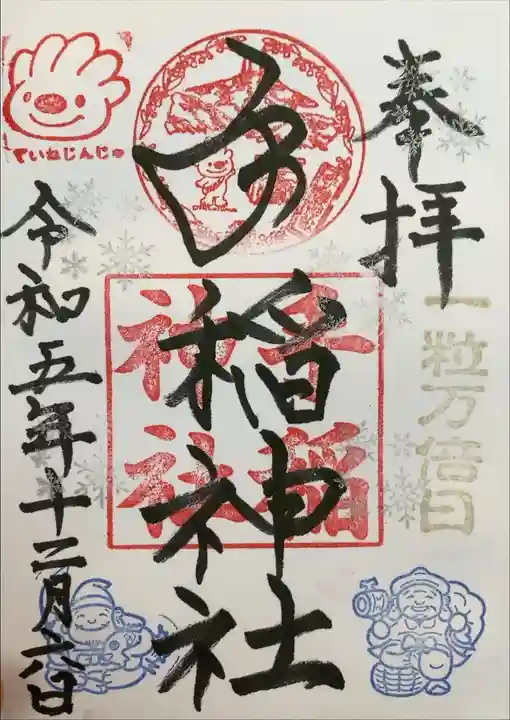 奉拝
一粒万倍日
手稲神社
手稲
神社
ていねじんじゃ
令和五年十二月六日